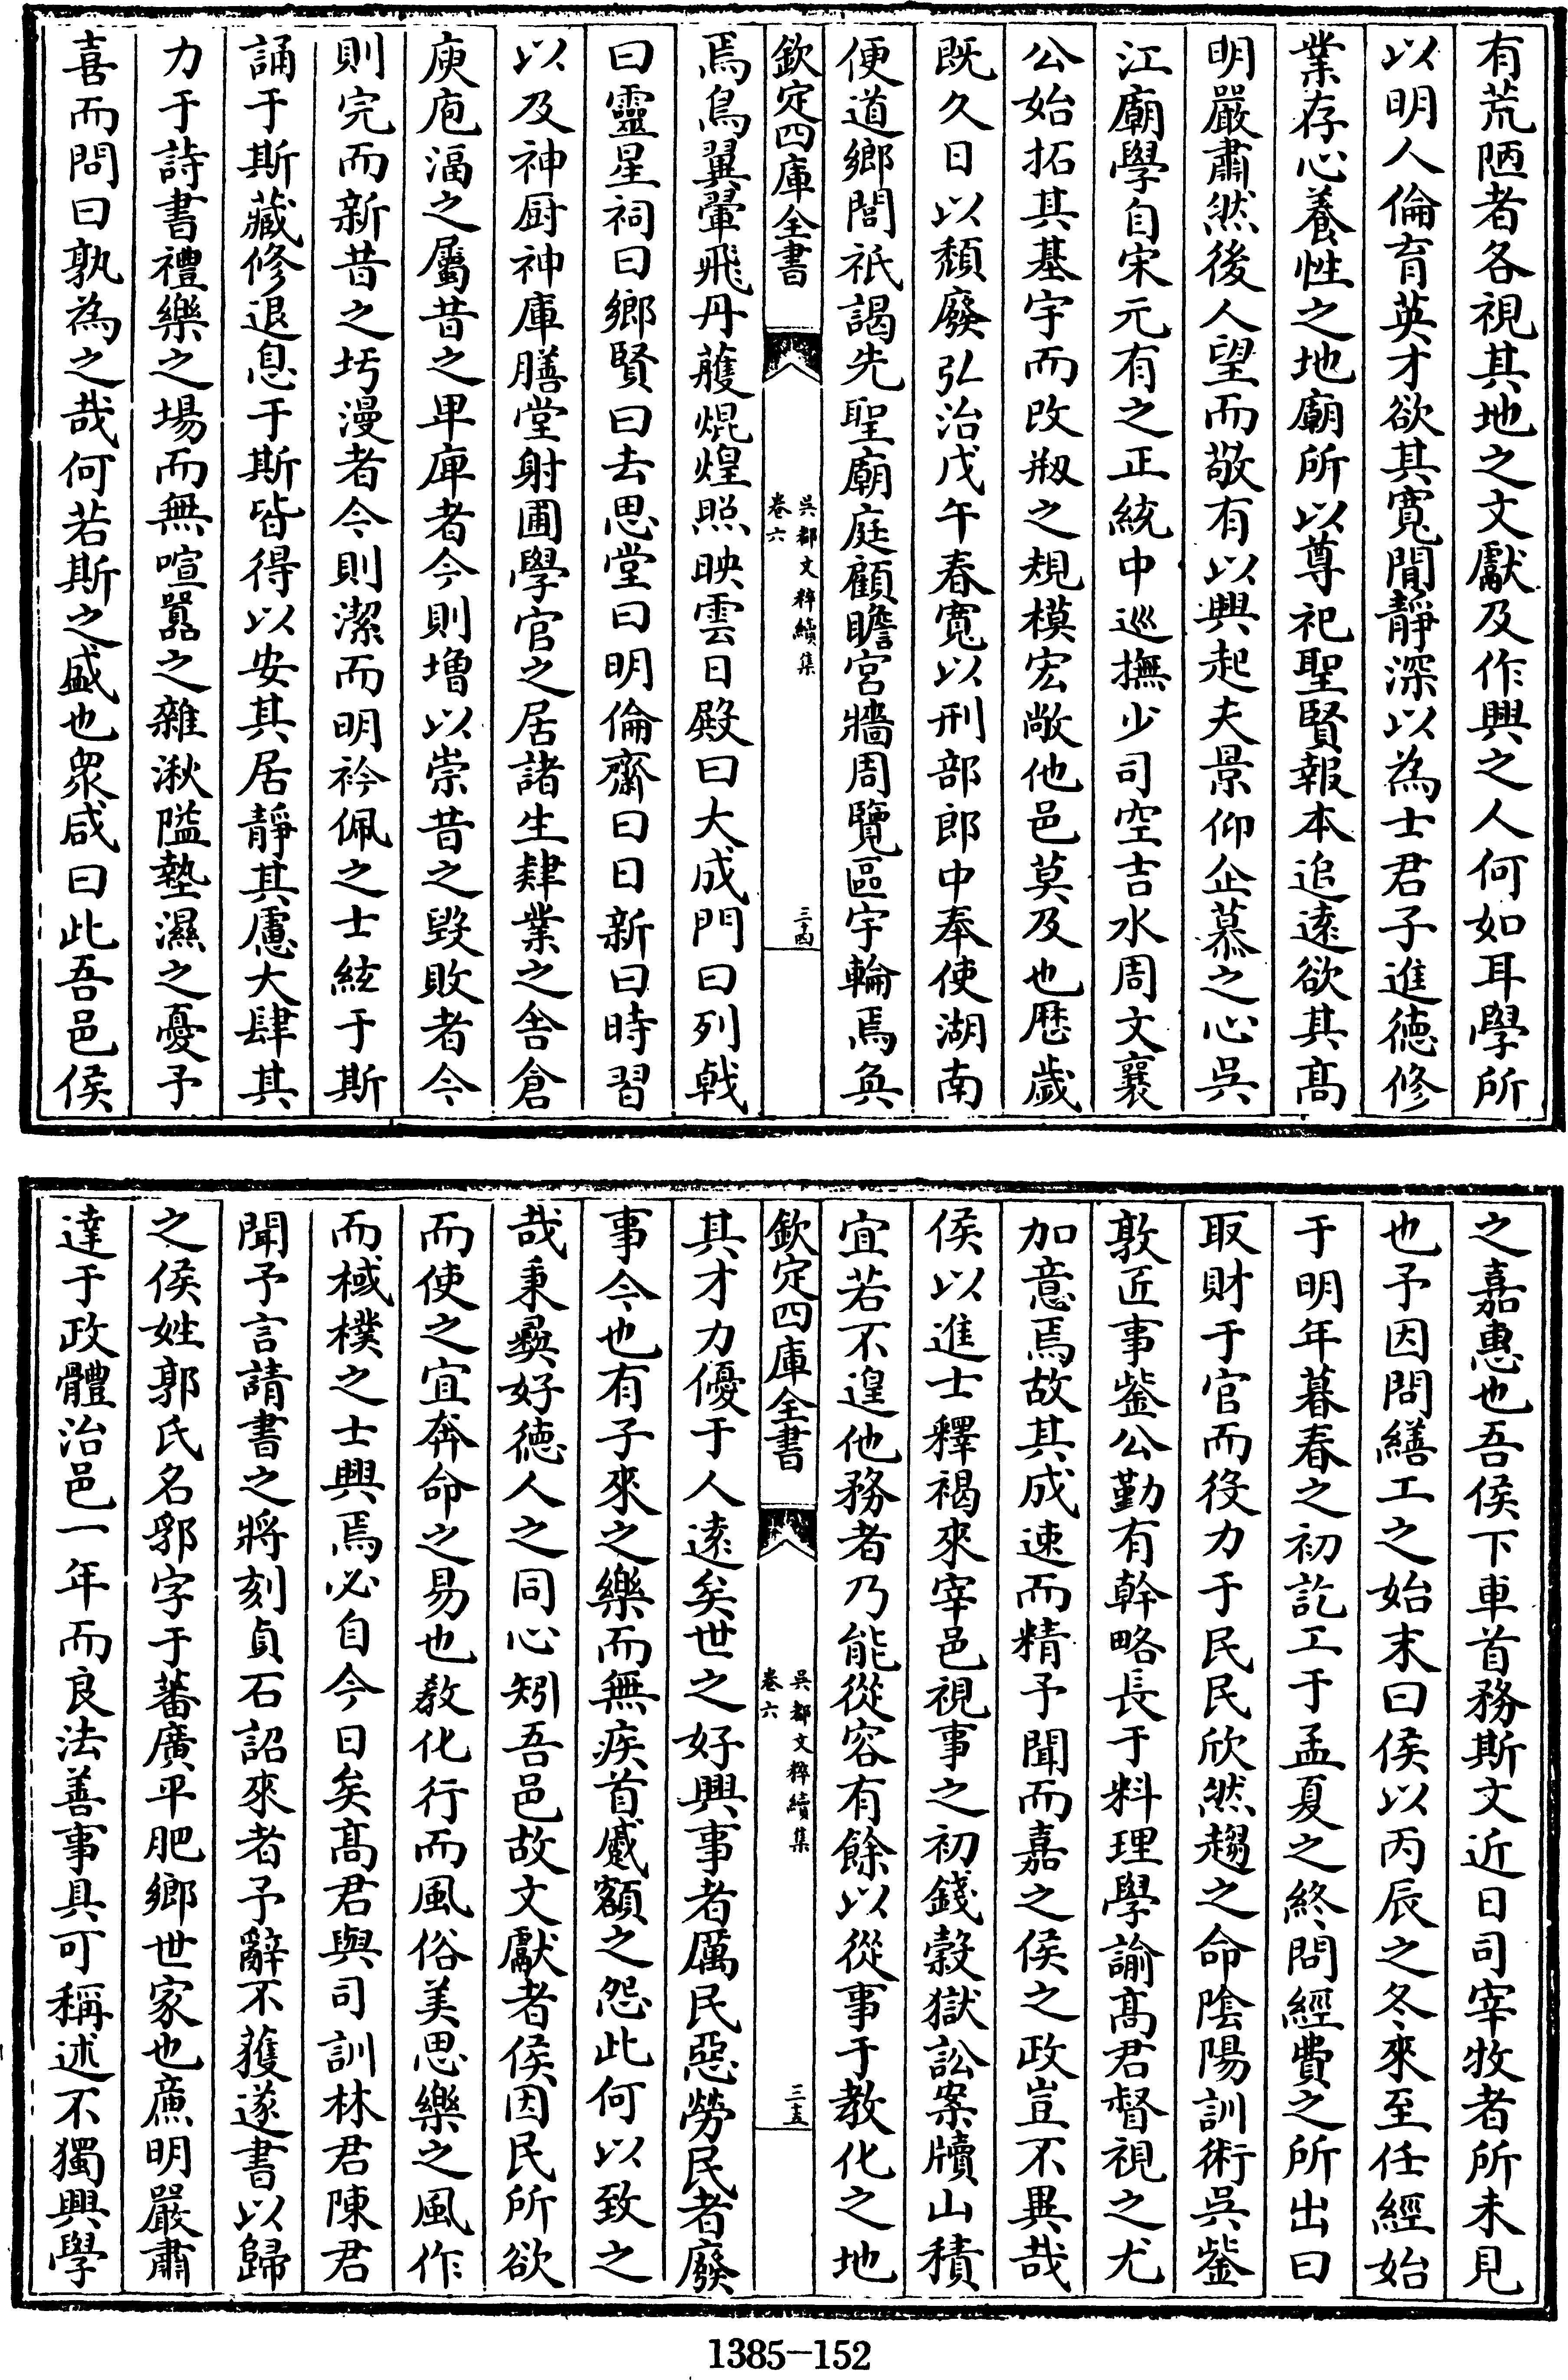 有荒陋者各視其地之文獻及作興之人何如耳學所
以明人倫育英才欲其寛閒靜深以為士君子進徳修
業存心養性之地廟所以尊祀聖賢報本追逺欲其髙
明嚴肅然後人望而敬有以興起夫景仰企慕之心吳
江廟學自宋元有之正統中巡撫少司空吉水周文襄
公始拓其基宇而改剏之規模宏敞他邑莫及也歴歲
既久日以頽廢弘治戊午春寛以刑部郎中奉使湖南
便道鄉閭祇謁先聖廟庭顧瞻宮牆周覽區宇輪焉奐
欽定四庫全書
吳都文粹續集
卷六
三十四
焉鳥翼翬飛丹雘焜煌照映雲日殿曰大成門曰列戟
曰靈星祠曰鄉賢曰去思堂曰明倫齋曰日新曰時習
以及神厨神庫膳堂射圃學官之居諸生肄業之舍倉
庾庖湢之屬昔之卑庳者今則増以崇昔之毀敗者今
則完而新昔之圬漫者今則潔而明衿佩之士絃于斯
誦于斯藏修退息于斯皆得以安其居靜其慮大肆其
力于詩書禮樂之場而無喧囂之雜湫隘墊濕之憂予
喜而問曰孰為之哉何若斯之盛也衆咸曰此吾邑侯
之嘉惠也吾侯下車首務斯文近日司宰牧者所未見
也予因問繕工之始末曰侯以丙辰之冬來至任經始
于明年暮春之初訖工于孟夏之終問經費之所出曰
取財于官而役力于民民欣然趨之命陰陽訓術吳鋆
敦匠事鋆公勤有幹略長于料理學諭髙君督視之尤
加意焉故其成速而精予聞而嘉之侯之政豈不異哉
侯以進士釋褐來宰邑視事之初錢穀獄訟案牘山積
宜若不遑他務者乃能從容有餘以從事于教化之地
欽定四庫全書
吳都文粹續集
卷六
三十五
其才力優于人逺矣世之好興事者厲民惡勞民者廢
事今也有子來之樂而無疾首蹙額之怨此何以致之
哉秉彛好徳人之同心矧吾邑故文獻者侯因民所欲
而使之宜奔命之易也教化行而風俗美思樂之風作
而棫樸之士興焉必自今日矣髙君與司訓林君陳君
聞予言請書之將刻貞石詔來者予辭不獲遂書以歸
之侯姓郭氏名郛字于蕃廣平肥鄉世家也亷明嚴肅
達于政體治邑一年而良法善事具可稱述不獨興學
1385-152